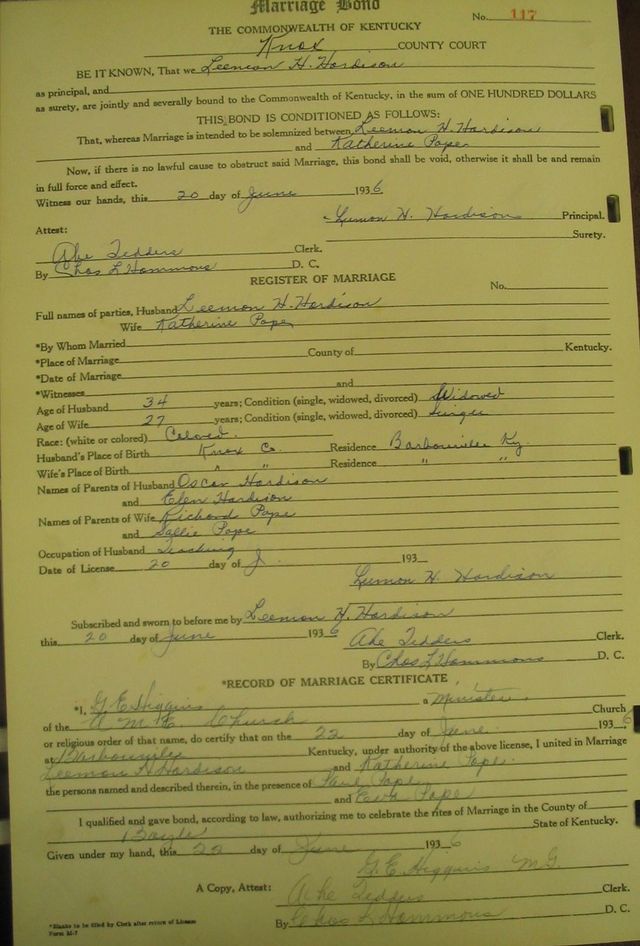 Marriage Bond
No. 117
THE COMMONWEALTH OF KENTUCKY
Knox COUNTY COURT
BE IT KNOWN, That we Leemon H. Hardison
as principal, and
as surety, are jointly and severally bound to the Commonwealth of Kentucky, in the sum of ONE HUNDRED DOLLARS
THIS BOND IS CONDITIONED AS FOLLOWS:
That, whereas Marriage is intended to be solemnized between Leemon H. Hardison
and Katherine Pope
Now, if there is no lawful cause to obstruct said Marriage, this bond shall be void, otherwise it shall be and remain
in full force and effect.
Witness our hands, this 20 day of June 1936
Lemon H. Hardison Principal.
Surety.
Attest:
Abe Tedders Clerk.
By Chas L Hammons D. C.
REGISTER OF MARRIAGE
No.
Full names of parties, Husband Leemon H. Hardison
Wife Katherine Pope
*By Whom Married
*Place of Marriage County of Kentucky.
*Date of Marriage
*Witnesses and
Age of Husband 34 years; Condition (single, widowed, divorced) Widowed
Age of Wife 27 years; Condition (single, widowed, divorced) Single
Race: (white or colored) Colored.
Husband's Place of Birth Knox Co. Residence Barbourville Ky.
Wife's Place of Birth " " Residence " "
Names of Parents of Husband Oscar Hardison
and Elen Hardison
Names of Parents of Wife Richard Pope
and Sallie Pope
Occupation of Husband Teaching
Date of License 20 day of J 193
Lemon H. Hardison
Subscribed and sworn to before me by Leemon H. Hardison
this 20 day of June 1936
Abe Tedders Clerk.
By Chas L Hammons D. C.
*RECORD OF MARRIAGE CERTIFICATE
*I, G. E. Higgins a Minister
of the A. M. E. Church Church
or religious order of that name, do certify that on the 22 day of June. 1936
at Barbourville Kentucky, under authority of the above license, I united in Marriage
Leemon H Hardison and Katherine Pope.
the persons named and described therein, in the presence of Pope
and Eva Pope
I qualified and gave bond, according to law, authorizing me to celebrate the rites of Marriage in the County of
Boyle State of Kentucky.
Given under my hand, this 22 day of June 1936
G. E. Higgins M.G.
A Copy, Attest: Abe Tedders Clerk.
By Chas L Hammons D. C.
*Blanks to be filled by Clerk after return of License
Form M-7